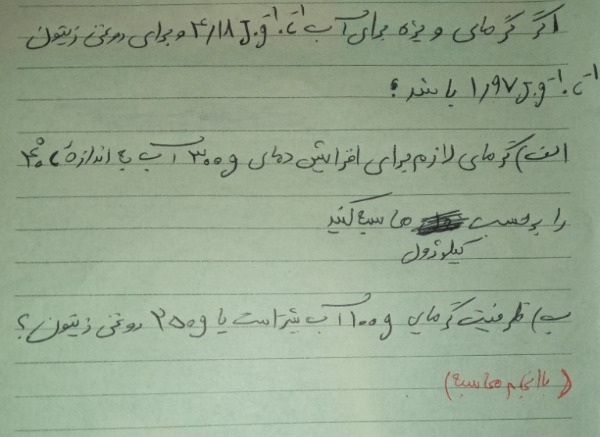 اگر گرمای ویژه برای آب ۴٫۱۸ J.g⁻¹.C⁻¹ و برای روغن زیتون
۱٫۹۷ J.g⁻¹.C⁻¹ باشد؟
الف) گرمای لازم برای افزایش دمای ۳۰۰g آب به اندازهٔ ۴۰°C
را برحسب محاسبه کنید
کیلوژول
ب) ظرفیت گرمایی ۱۰۰g آب بیشتر است یا ۲۵۰g روغن زیتون؟
(باانجام محاسبه)